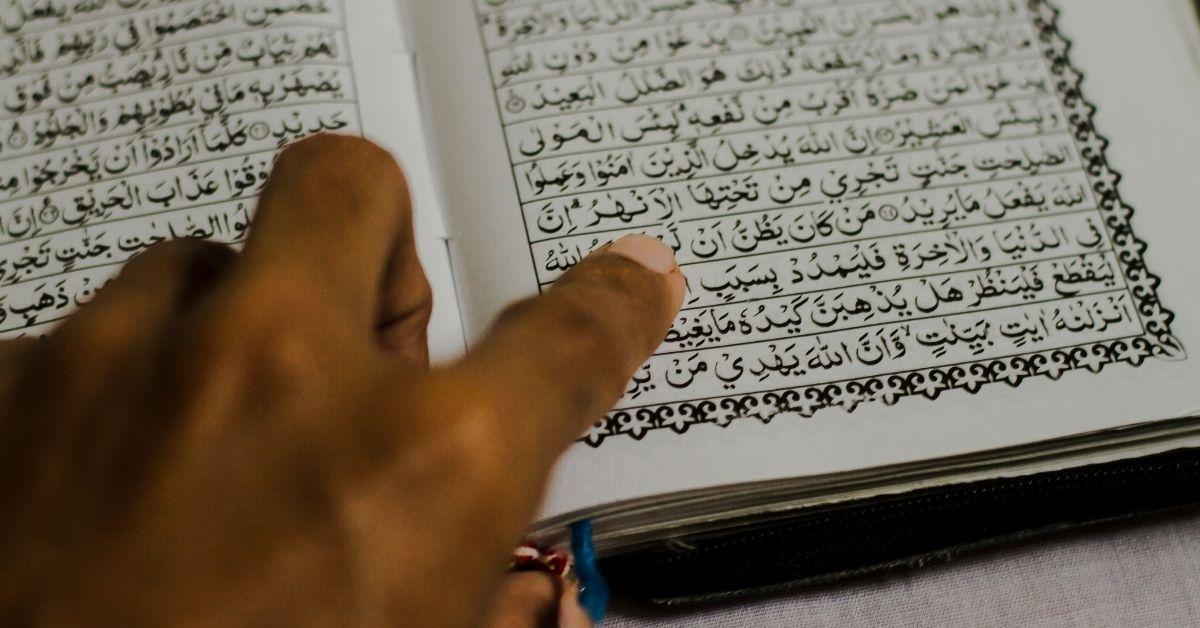 خَسِرَ الدُّنْيَا وَالْاٰخِرَةَ
ذٰلِكَ هُوَ الْخُسْرَانُ الْمُبِيْنُ ۝١١ يَدْعُوْا مِنْ دُوْنِ اللّٰهِ
مَا لَا يَضُرُّهٗ وَمَا لَا يَنْفَعُهٗ ذٰلِكَ هُوَ الضَّلٰلُ الْبَعِيْدُ ۝١٢
يَدْعُوْا لَمَنْ ضَرُّهٗۤ اَقْرَبُ مِنْ نَّفْعِهٖ لَبِئْسَ الْمَوْلٰى
وَلَبِئْسَ الْعَشِيْرُ ۝١٣ اِنَّ اللّٰهَ يُدْخِلُ الَّذِيْنَ اٰمَنُوْا وَعَمِلُوا
الصّٰلِحٰتِ جَنّٰتٍ تَجْرِيْ مِنْ تَحْتِهَا الْاَنْهٰرُ اِنَّ
اللّٰهَ يَفْعَلُ مَا يُرِيْدُ ۝١٤ مَنْ كَانَ يَظُنُّ اَنْ اللّٰهُ
فِى الدُّنْيَا وَالْاٰخِرَةِ فَلْيَمْدُدْ بِسَبَبٍ
لْيَقْطَعْ فَلْيَنْظُرْ هَلْ يُذْهِبَنَّ كَيْدُهٗ مَا يَغِيْظُ
اَنْزَلْنٰهُ اٰيٰتٍۭ بَيِّنٰتٍ وَّاَنَّ اللّٰهَ يَهْدِيْ مَنْ
خَصْمٰنِ اخْتَصَمُوْا فِيْ رَبِّهِمْ فَالَّذِيْنَ
لَهُمْ ثِيَابٌ مِّنْ نَّارٍ يُصَبُّ مِنْ فَوْقِ
يُصْهَرُ بِهٖ مَا فِيْ بُطُوْنِهِمْ وَالْجُلُوْدُ ۝٢٠
حَدِيْدٍ ۝٢١ كُلَّمَاۤ اَرَادُوْۤا اَنْ يَّخْرُجُوْا
وَذُوْقُوْا عَذَابَ الْحَرِيْقِ ۝٢٢ اِنَّ
الصّٰلِحٰتِ جَنّٰتٍ تَجْرِيْ
مِنْ ذَهَبٍ